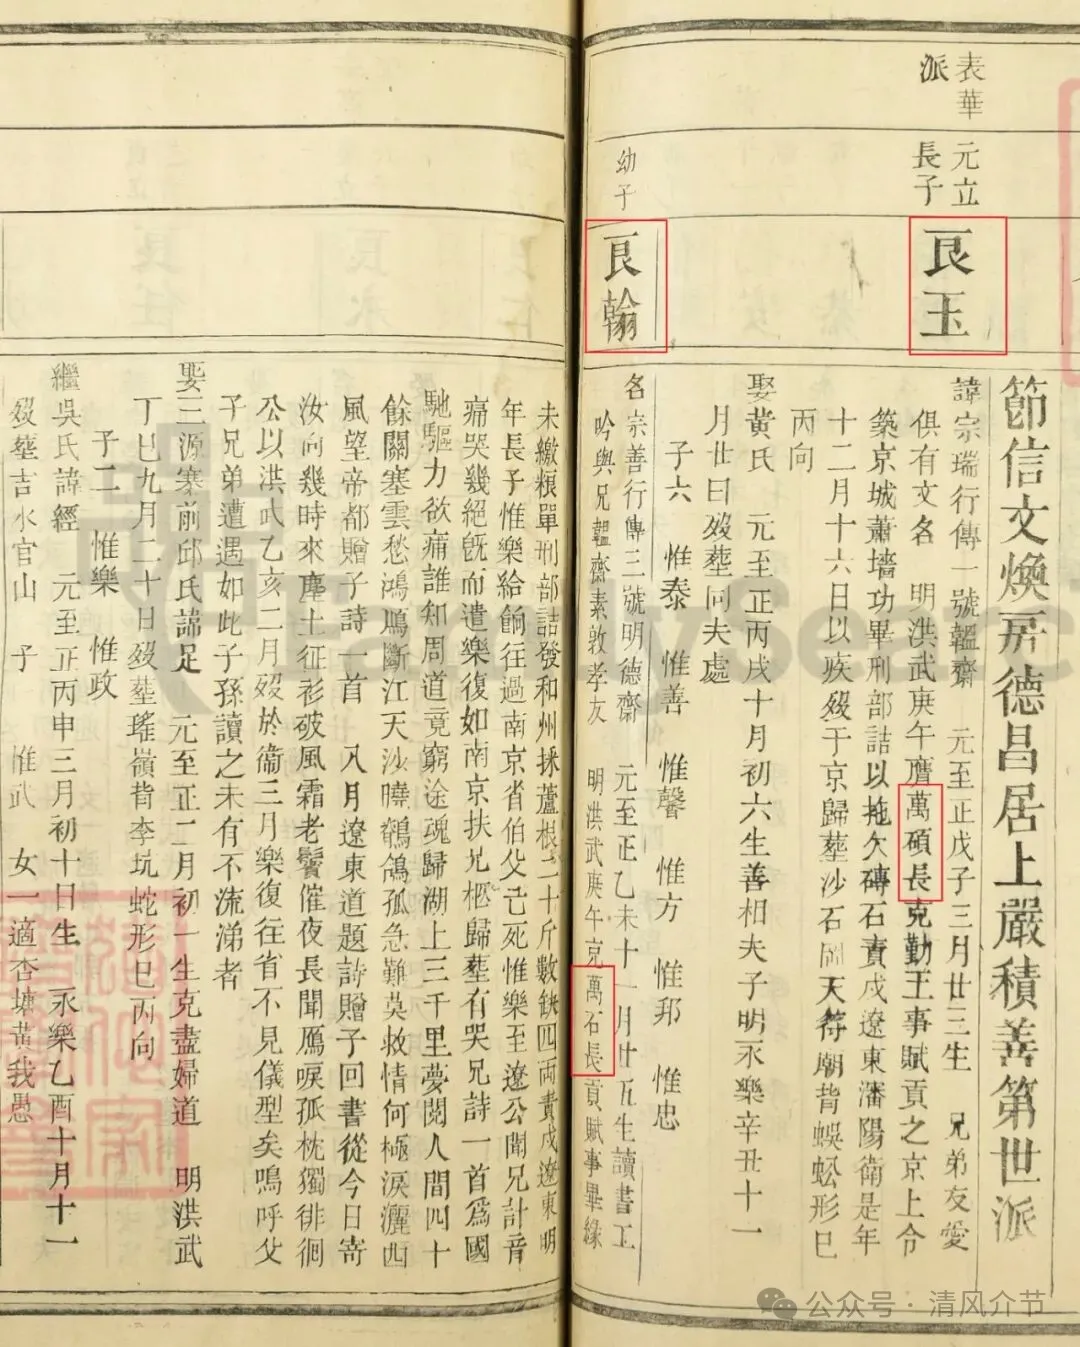 節信文煥房德昌居上嚴積善第世派
表華派
元立長子
艮玉
諱宗瑞行傳一號韞齋 元至正戊子三月廿三生 兄弟友愛
俱有文名 明洪武庚午膺萬碩長克勤王事賦貢之京上令
築京城蕭墻功畢刑部詰以拖欠磚石責戍遼東瀋陽衛是年
十二月十六日以疾歿于京歸塟沙石岡天符廟背蜈蚣形巳
丙向
娶黃氏 元至正丙戌十月初六生善相夫子明永樂辛丑十一
月廿日歿塟同夫處
子六 惟泰 惟善 惟馨 惟方 惟邦 惟忠
幼子
艮翰
名宗善行傳三號明德齋 元至正乙未十一月廿九生讀書工
吟與兄韞齋素敦孝友 明洪武庚午克萬石長貢賦事畢緣
未繳糧單刑部詰發和州採蘆根二十斤數缺四兩責戍遼東明
年長子惟樂給餉往過南京省伯父已死惟樂至遼公聞兄訃音
痛哭幾絕旣而遣樂復如南京扶兄柩歸塟有哭兄詩一首爲國
馳驅力欲痛誰知周道竟窮途魂歸湖上三千里夢閱人間四十
餘關塞雲愁鴻鴈斷江天沙曉鶺鴒孤急難莫救情何極淚灑西
風望帝都贈子詩一首 八月遼東道題詩贈子回書從今日寄
汝向幾時來塵土征衫破風霜老鬢催夜長聞鴈唳孤枕獨徘徊
公以洪武乙亥二月歿於衞三月樂復往省不見儀型矣嗚呼父
子兄弟遭遇如此子孫讀之未有不流涕者
娶三源寨前邱氏端足 元至正二月初一生克盡婦道 明洪武
丁巳九月二十日歿塟瑤嶺背李坑蛇形巳丙向
子二 惟樂 惟政
繼吳氏諱經 元至正丙申三月初十日生 永樂乙酉十月十一
歿塟吉水官山 子 惟武 女一適杏塘黃我愚
公众号·清风介节